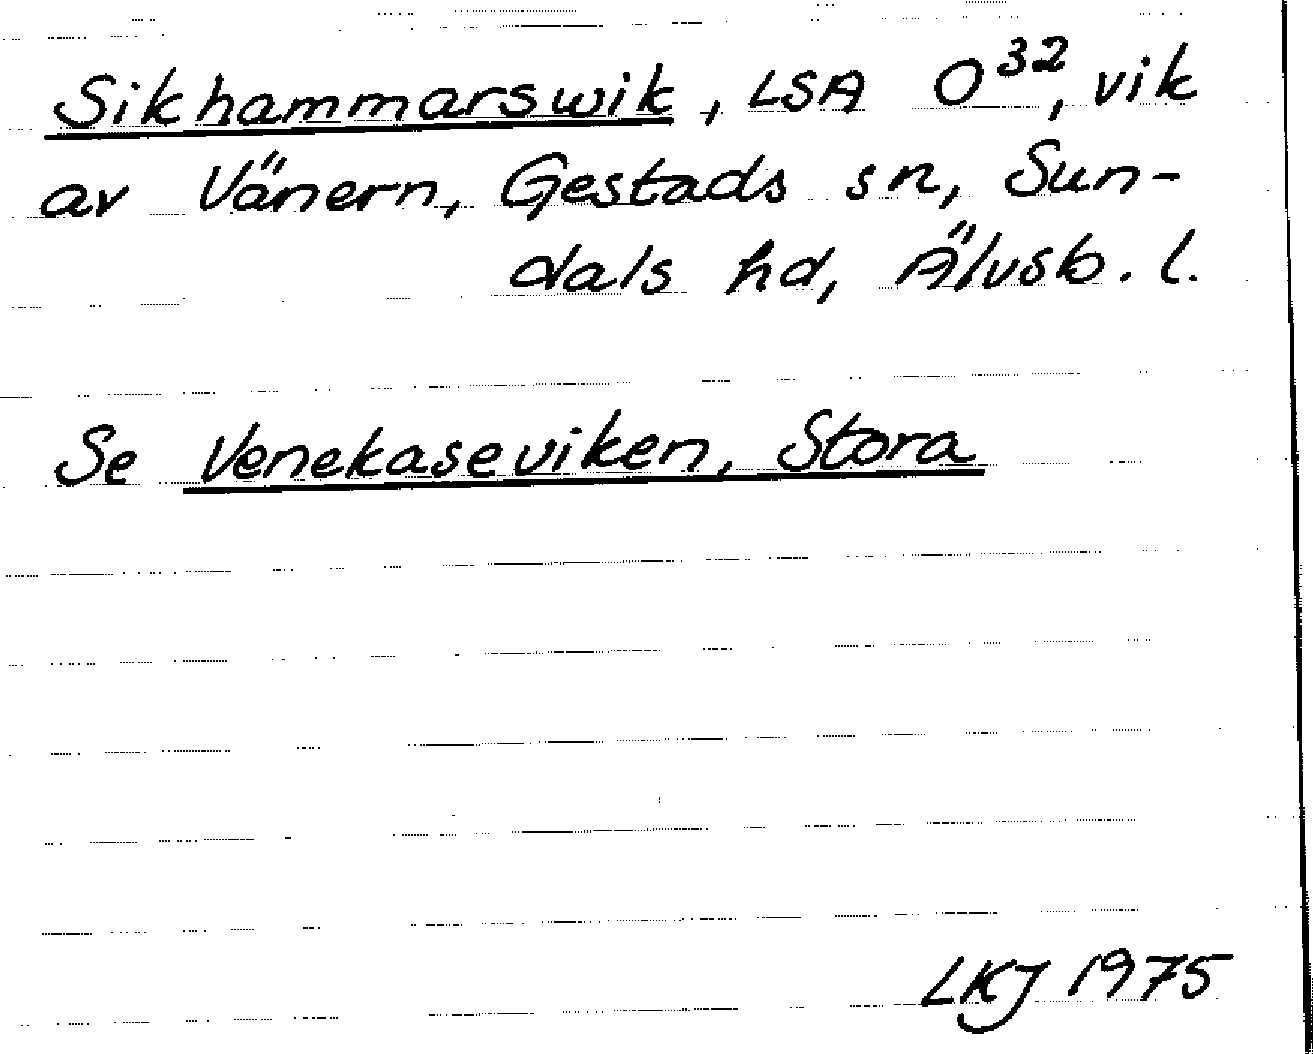 Sikhammarswik, LSA O³², vik
av Vänern, Gestads sn, Sun-
dals hd, Älvsb. l.
Se Venekaseviken, Stora
LKJ 1975